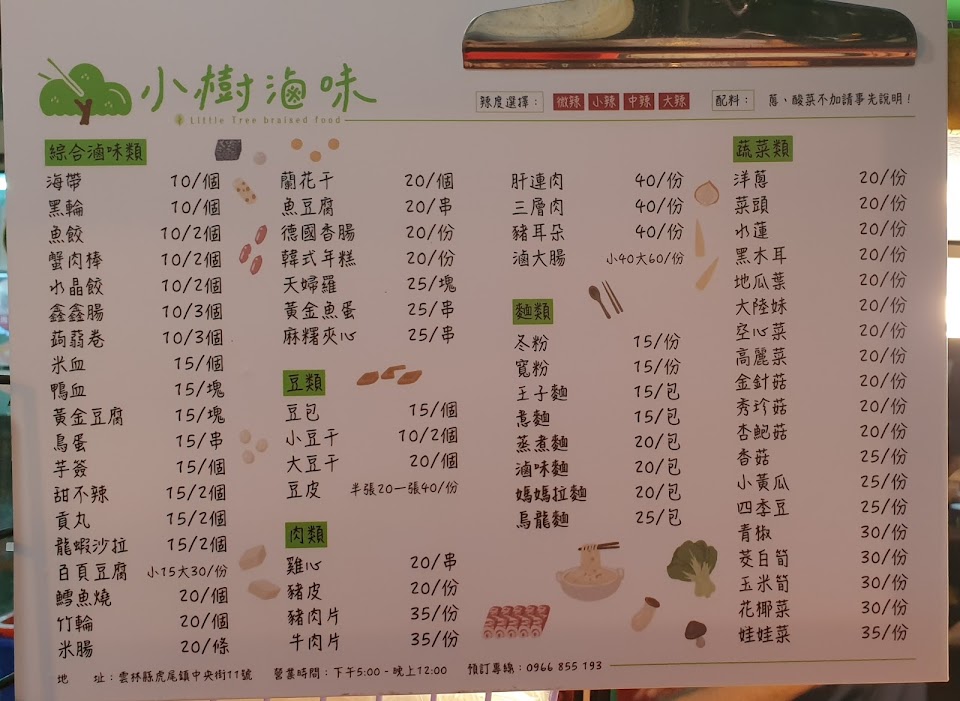 小樹滷味
Little Tree braised food
辣度選擇： 微辣 小辣 中辣 大辣 配料： 蔥、酸菜不加請事先說明！
綜合滷味類
海帶 10/個
黑輪 10/個
魚餃 10/2個
蟹肉棒 10/2個
水晶餃 10/2個
鑫鑫腸 10/3個
蒟蒻卷 10/3個
米血 15/個
鴨血 15/塊
黃金豆腐 15/塊
鳥蛋 15/串
芋簽 15/個
甜不辣 15/2個
貢丸 15/2個
龍蝦沙拉 15/2個
百頁豆腐 小15大30/份
鱈魚燒 20/個
竹輪 20/個
米腸 20/條
蘭花干 20/個
魚豆腐 20/串
德國香腸 20/份
韓式年糕 20/份
天婦羅 25/塊
黃金魚蛋 25/串
麻糬夾心 25/串
豆類
豆包 15/個
小豆干 10/2個
大豆干 20/個
豆皮 半張20一張40/份
肉類
雞心 20/串
豬皮 20/份
豬肉片 35/份
牛肉片 35/份
肝連肉 40/份
三層肉 40/份
豬耳朵 40/份
滷大腸 小40大60/份
麵類
冬粉 15/份
寬粉 15/份
王子麵 15/包
意麵 15/包
蒸煮麵 20/包
滷味麵 20/包
媽媽拉麵 20/包
烏龍麵 25/包
蔬菜類
洋蔥 20/份
菜頭 20/份
水蓮 20/份
黑木耳 20/份
地瓜葉 20/份
大陸妹 20/份
空心菜 20/份
高麗菜 20/份
金針菇 20/份
秀珍菇 20/份
杏鮑菇 20/份
香菇 25/份
小黃瓜 25/份
四季豆 25/份
青椒 30/份
茭白筍 30/份
玉米筍 30/份
花椰菜 30/份
娃娃菜 35/份
地 址：雲林縣虎尾鎮中央街11號 營業時間：下午5:00 - 晚上12:00 預訂專線：0966 855 193